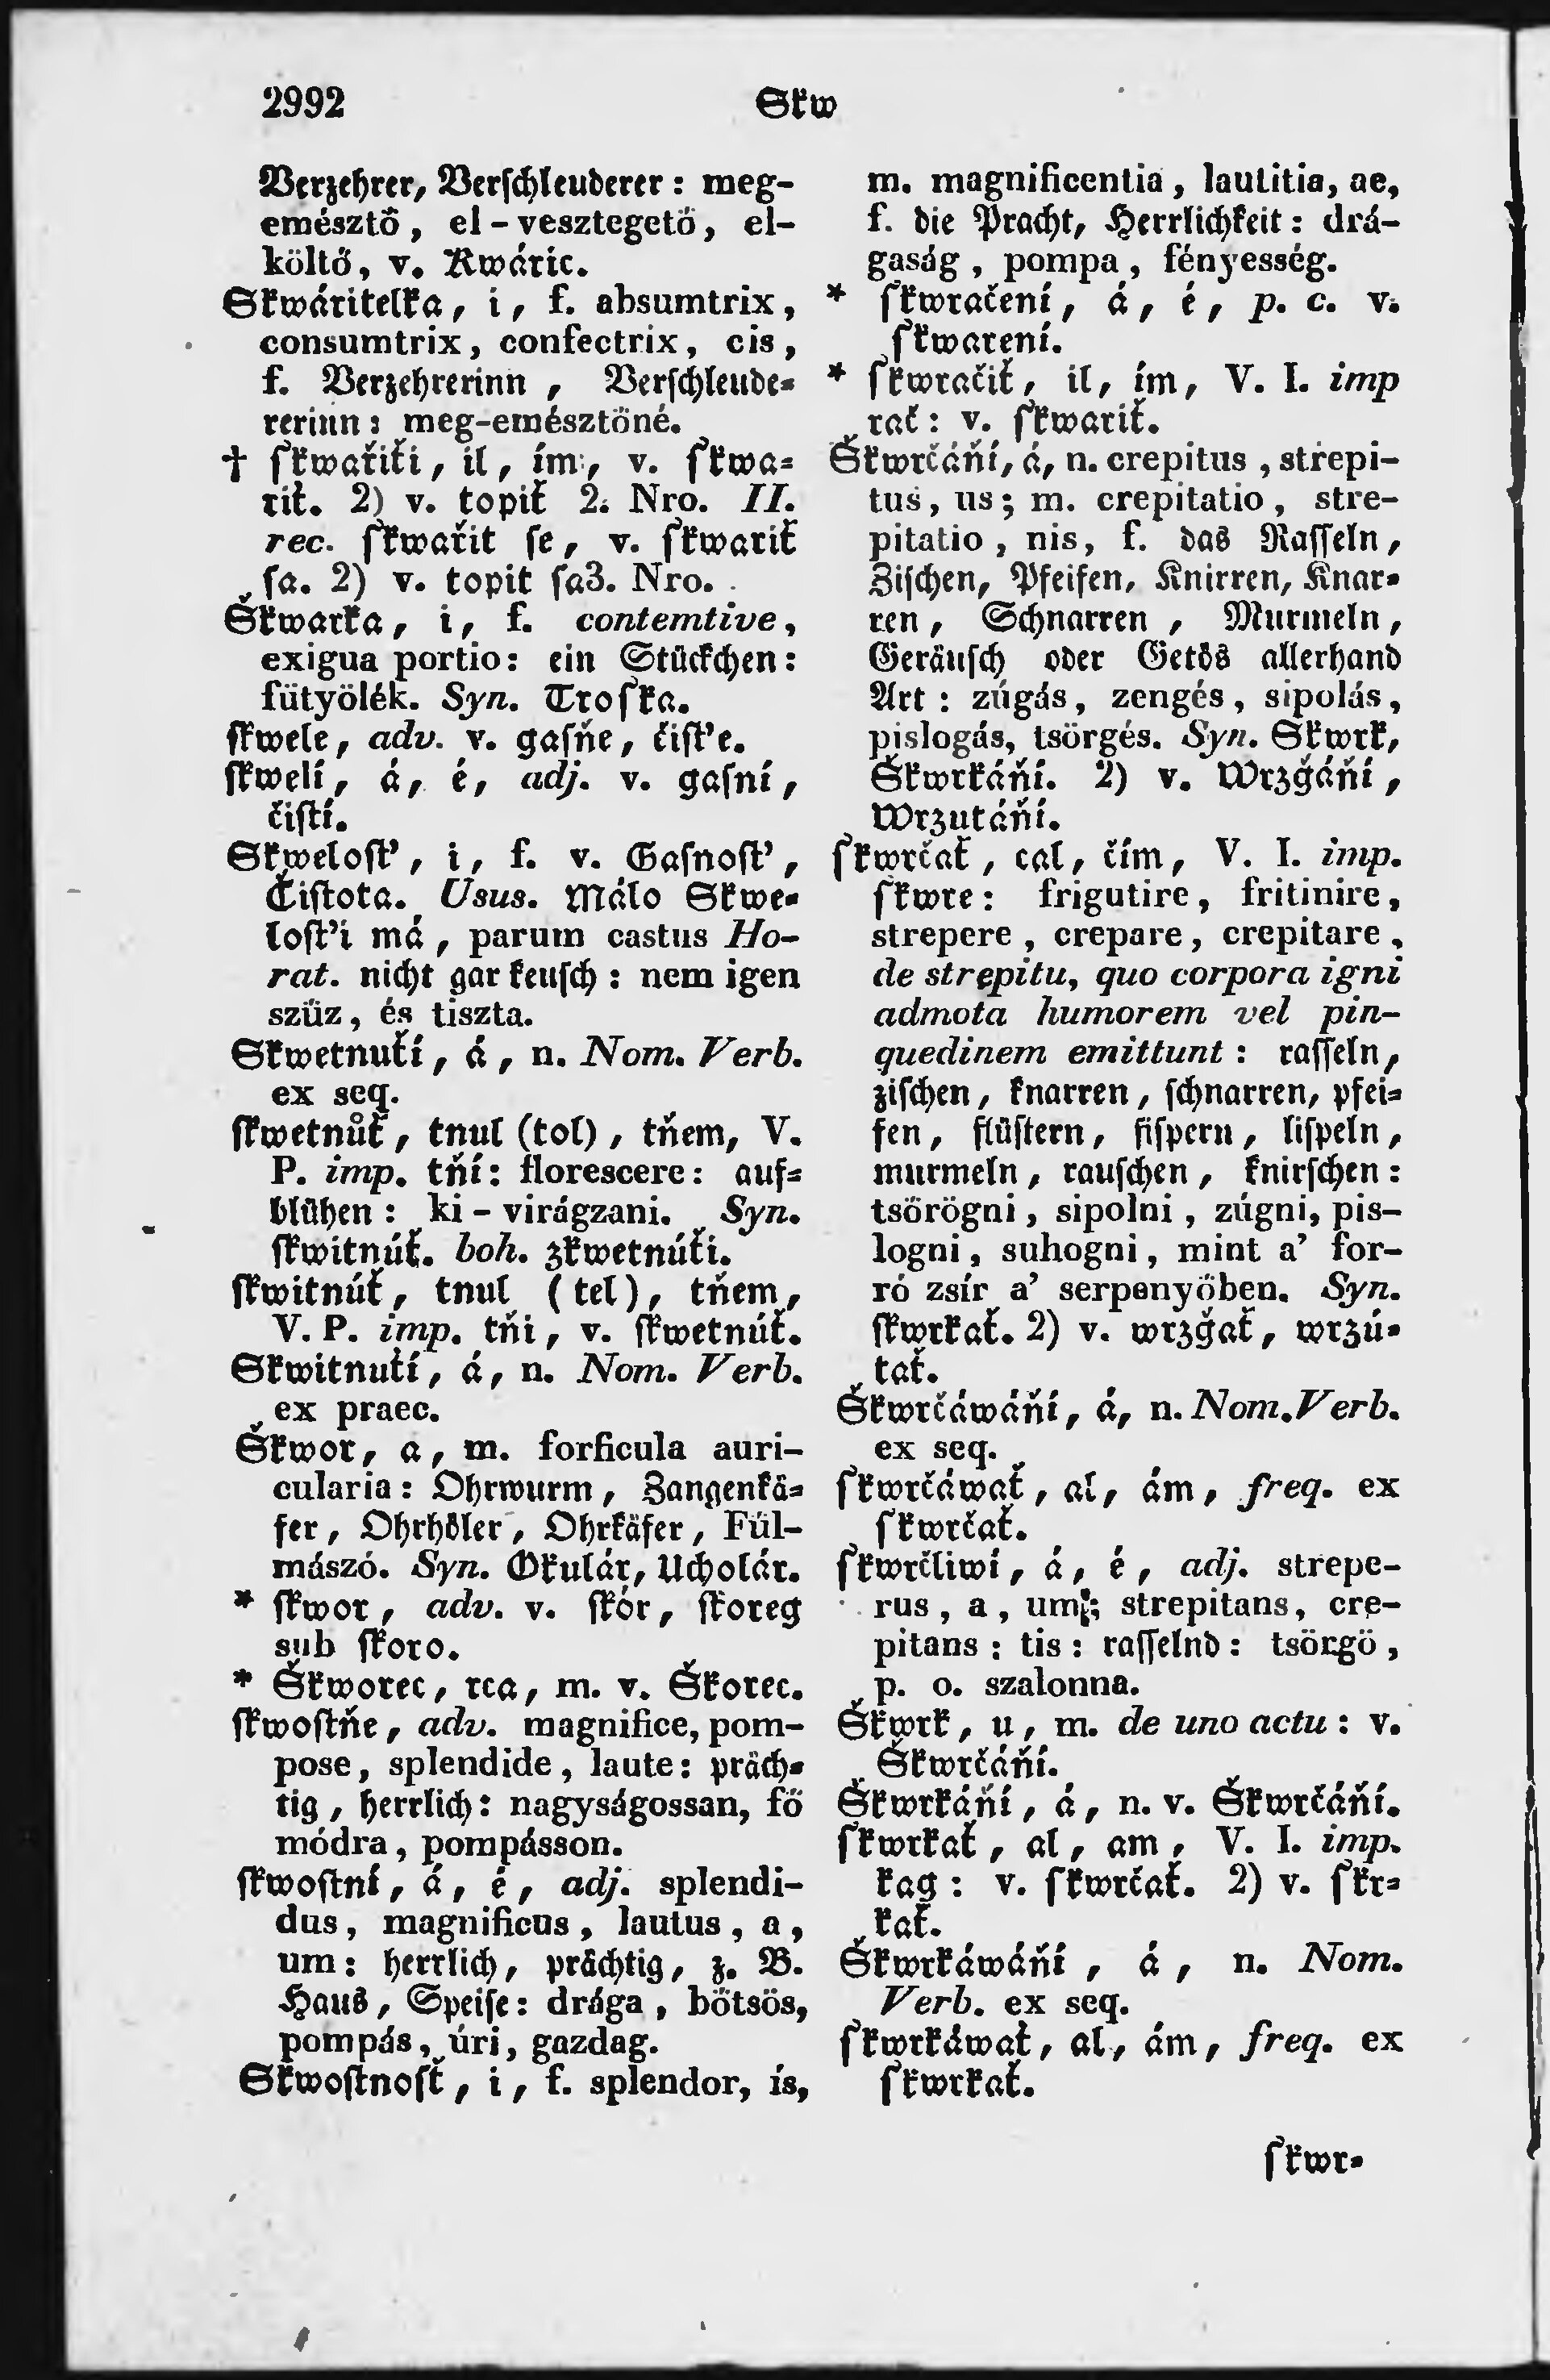 2992
Skw
Verzehrer, Verschleuderer: meg-
emésztő, el-vesztegető, el-
költő, v. Kwáric.
Skwáritelka, i, f. absumtrix,
consumtrix, confectrix, cis,
f. Verzehrerinn, Verschleude-
rerinn: meg-emésztőné.
† skwařiťi, il, ím, v. skwa-
riť. 2) v. topiť 2. Nro. II.
rec. skwařit se, v. skwariť
sa. 2) v. topit sa3. Nro.
Škwarka, i, f. contemtive,
exigua portio: ein Stückchen:
fütyölék. Syn. Troska.
skwele, adv. v. gasňe, čisťe.
skwelí, á, é, adj. v. gasní,
čistí.
Skwelosť, i, f. v. Gasnosť,
Čistota. Usus. Málo Skwe-
losťi má, parum castus Ho-
rat. nicht gar keusch: nem igen
szűz, és tiszta.
Skwetnuťí, á, n. Nom. Verb.
ex seq.
skwetnůť, tnul (tol), tňem, V.
P. imp. tňí: florescere: auf-
blühen: ki-virágzani. Syn.
skwitnúť. boh. zkwetnúťi.
skwitnúť, tnul (tel), tňem,
V. P. imp. tňi, v. skwetnúť.
Skwitnuťí, á, n. Nom. Verb.
ex praec.
Škwor, a, m. forficula auri-
cularia: Ohrwurm, Zangenkä-
fer, Ohrhöler, Ohrkäfer, Fül-
mászó. Syn. Okulár, Ucholár.
* skwor, adv. v. skór, skoreg
sub skoro.
* Škworec, rca, m. v. Škorec.
skwostňe, adv. magnifice, pom-
pose, splendide, laute: präch-
tig, herrlich: nagyságossan, fő
módra, pompásson.
skwostní, á, é, adj. splendi-
dus, magnificus, lautus, a,
um: herrlich, prächtig, z. B.
Haus, Speise: drága, bőtsös,
pompás, úri, gazdag.
Skwostnosť, i, f. splendor, is,
m. magnificentia, lautitia, ae,
f. die Pracht, Herrlichkeit: drá-
gaság, pompa, fényesség.
* skwračení, á, é, p. c. v.
skwarení.
* skwračiť, il, ím, V. I. imp
rač: v. skwariť.
Škwrčáňí, á, n. crepitus, strepi-
tus, us; m. crepitatio, stre-
pitatio, nis, f. das Rasseln,
Zischen, Pfeifen, Knirren, Knar-
ren, Schnarren, Murmeln,
Geräusch oder Getös allerhand
Art: zúgás, zengés, sipolás,
pislogás, tsörgés. Syn. Skwrk,
Škwrkáňí. 2) v. Wrzgáňí,
Wrzutáňí.
skwrčať, cal, čím, V. I. imp.
skwre: frigutire, fritinire,
strepere, crepare, crepitare,
de strepitu, quo corpora igni
admota humorem vel pin-
quedinem emittunt: rasseln,
zischen, knarren, schnarren, pfei-
fen, flüstern, fispern, lispeln,
murmeln, rauschen, knirschen:
tsörögni, sipolni, zúgni, pis-
logni, suhogni, mint a' for-
ró zsír a' serpenyőben. Syn.
skwrkať. 2) v. wrzgať, wrzú-
tať.
Škwrčáwáňí, á, n. Nom. Verb.
ex seq.
skwrčáwať, al, ám, freq. ex
skwrčať.
skwrčliwí, á, é, adj. strepe-
rus, a, um; strepitans, cre-
pitans: tis: rasselnd: tsörgö,
p. o. szalonna.
Škwrk, u, m. de uno actu: v.
Škwrčáňí.
Škwrkáňí, á, n. v. Škwrčáňí.
skwrkať, al, am, V. I. imp.
kag: v. skwrčať. 2) v. skr-
kať.
Škwrkáwáňí, á, n. Nom.
Verb. ex seq.
skwrkáwať, al, ám, freq. ex
skwrkať.
skwr-